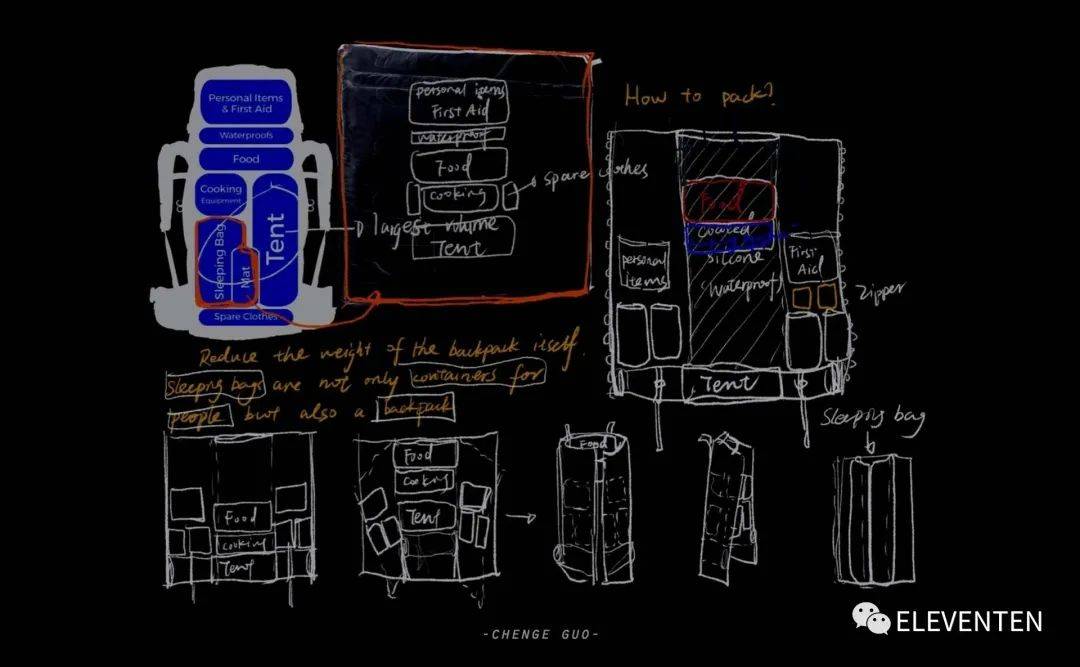 Personal Items
& First Aid
Waterproofs
Food
Cooking
Equipment
Sleeping Bag
Mat
Tent
Spare Clothes
personal items
First Aid
waterproof
Food
cooking
spare clothes
largest volume
Tent
How to pack?
Food
silicone
(waterproof)
personal
items
First
Aid
Zipper
Tent
Reduce the weight of the backpack itself.
Sleeping bags are not only containers for
people but also a backpack
Food
cooking
Tent
Food
cooking
Tent
Food
Sleeping bag
-CHENGE GUO-
ELEVENTEN